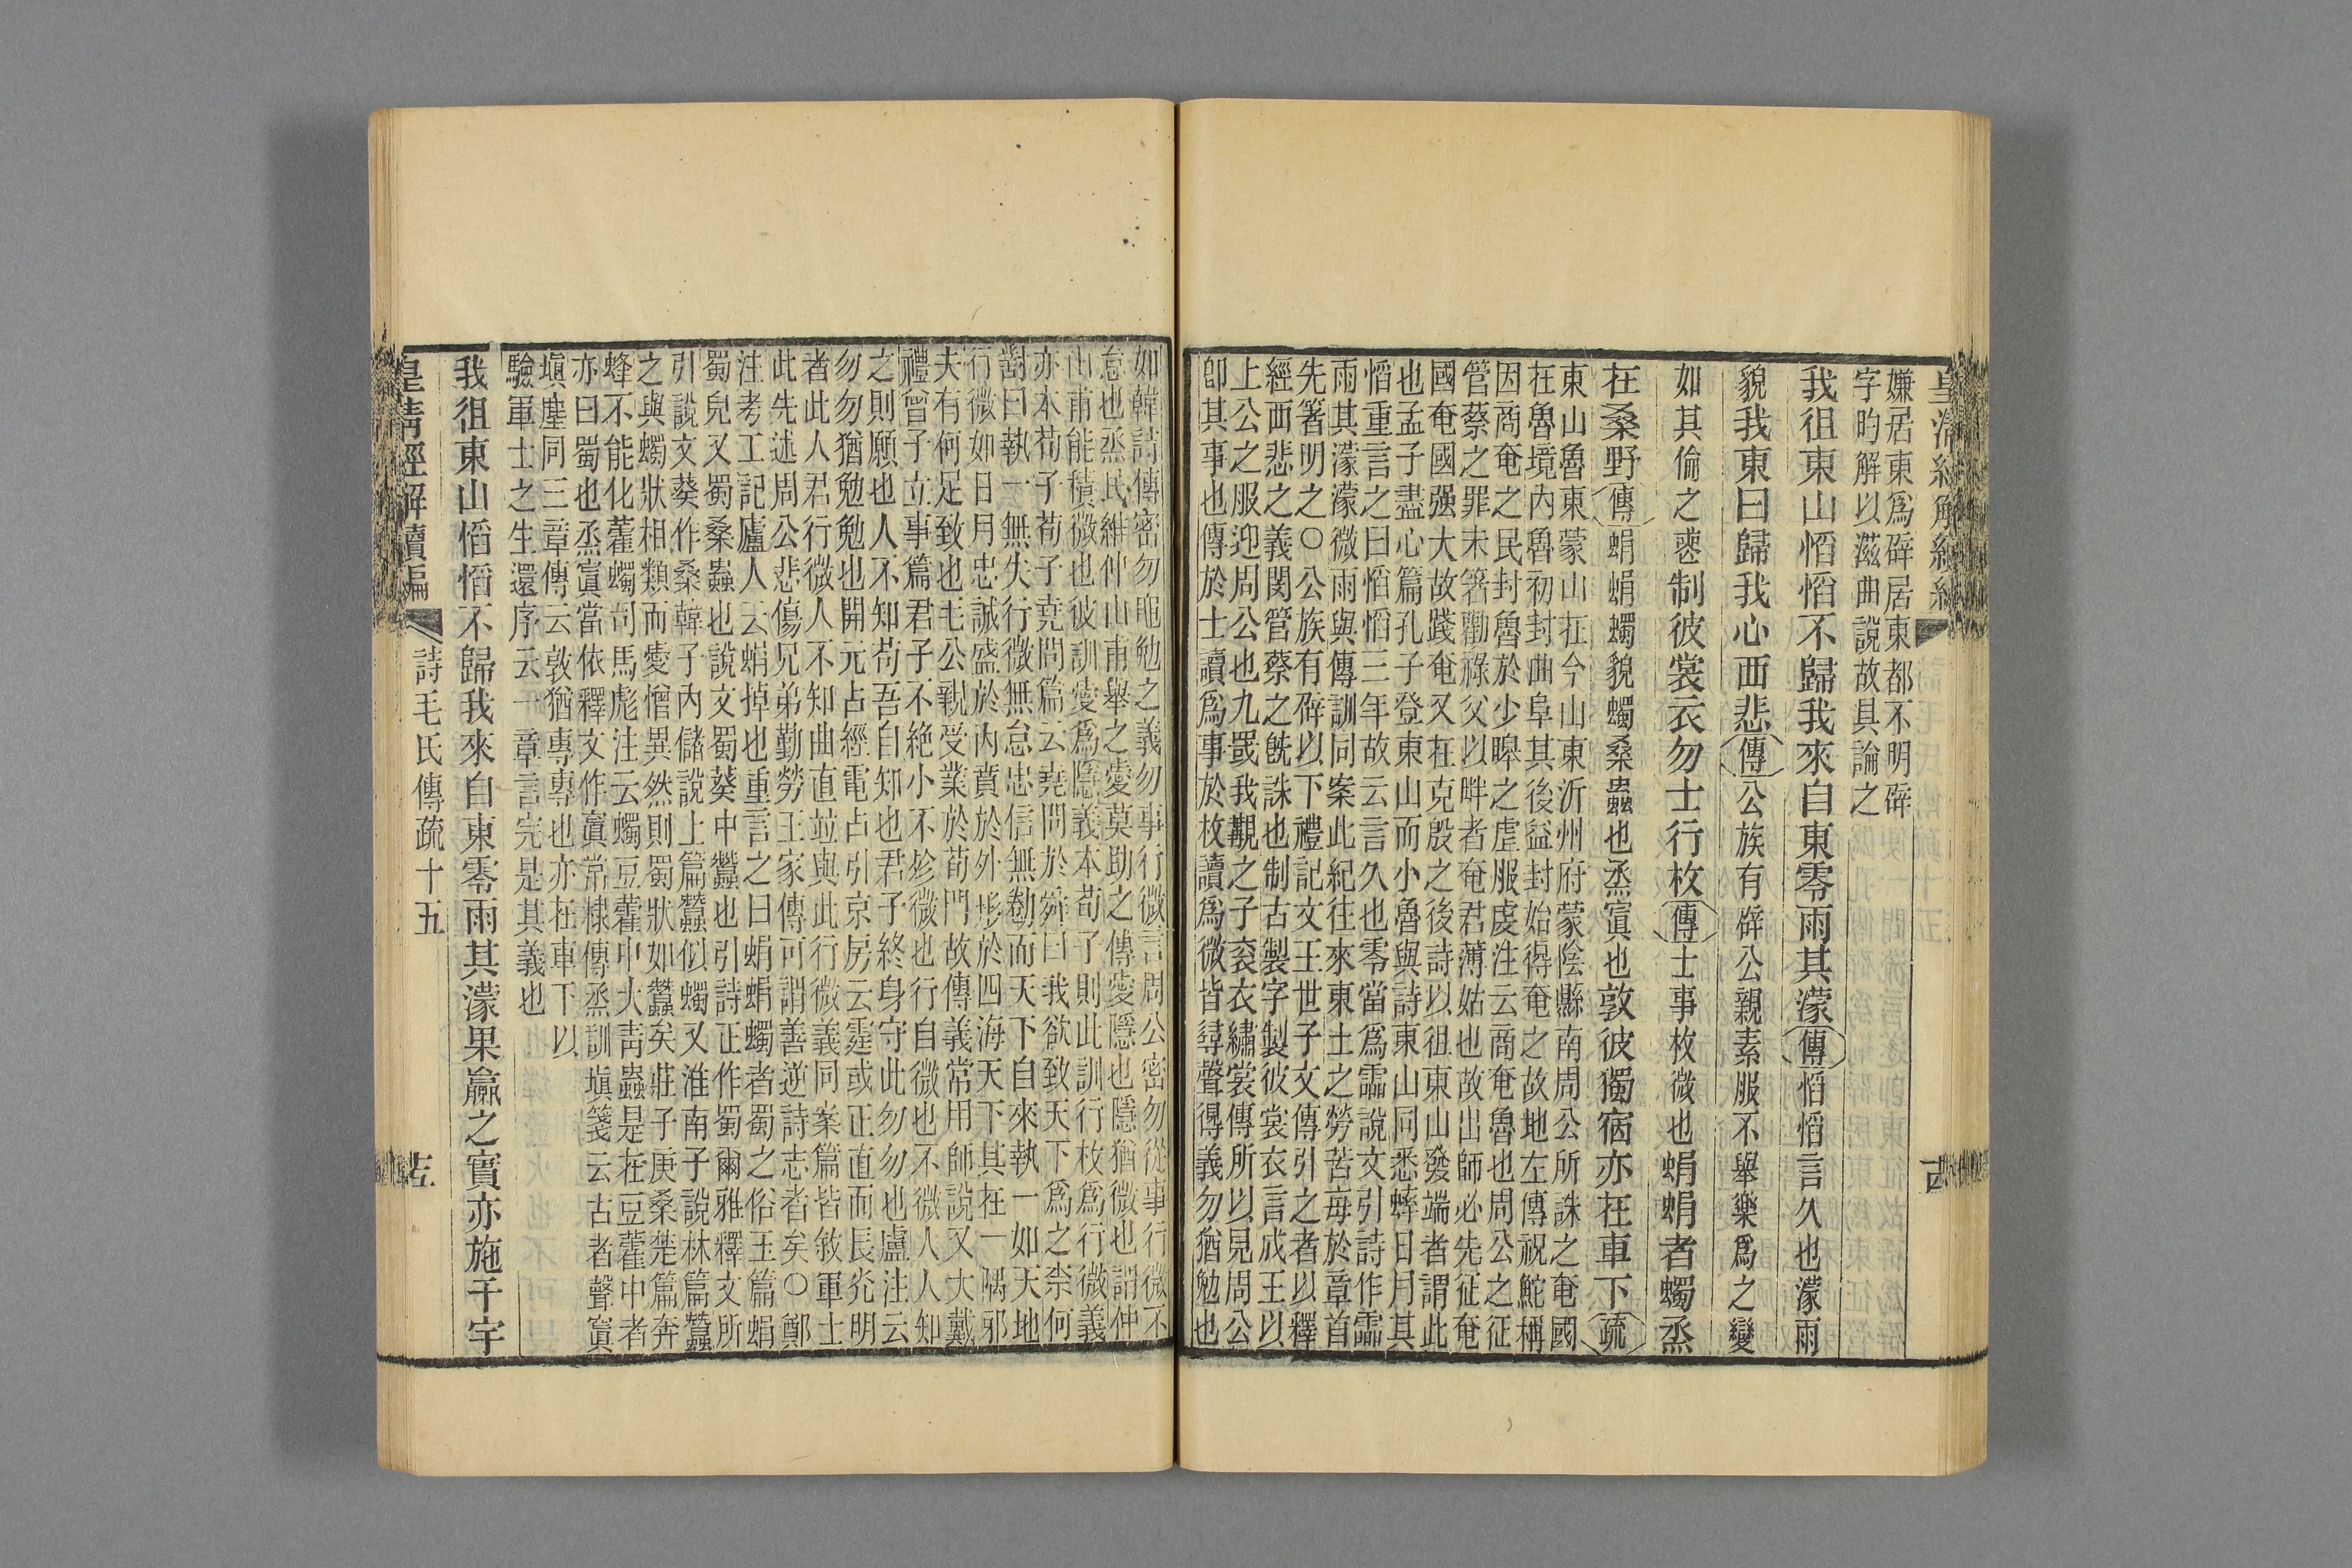 嫌居東爲辟居東都不明辟
字旳解以滋曲說故具論之
我徂東山慆慆不歸我來自東零雨其濛傳慆慆言久也濛雨
貌我東曰歸我心西悲傳公族有辟公親素服不舉樂爲之變
如其倫之喪制彼裳衣勿士行枚傳士事枚微也蜎蜎者蠋烝
在桑野傳蜎蜎蠋貌蠋桑蟲也烝寘也敦彼獨宿亦在車下疏
東山魯東蒙山在今山東沂州府蒙陰縣南周公所誅之奄國
在魯境內魯初封曲阜其後益封始得奄之故地左傳祝鮀稱
因商奄之民封魯於少皞之虛服虔注云商奄魯也周公之征
管蔡之罪未箸勸祿父以畔者奄君薄姑也故出師必先征奄
國奄國强大故踐奄又在克殷之後詩以徂東山發端者謂此
也孟子盡心篇孔子登東山而小魯與詩東山同悉蟀日月其
慆重言之曰慆慆三年故云言久也零當爲霝說文引詩作霝
雨其濛濛微雨與傳訓同案此紀往來東土之勞苦每於章首
先箸明之○公族有辟以下禮記文王世子文傳引之者以釋
經西悲之義閔管蔡之旣誅也制古製字製彼裳衣言成王以
上公之服迎周公也九罭我覯之子袞衣繡裳傳所以見周公
卽其事也傳於士讀爲事於枚讀爲微皆㝷聲得義勿猶勉也
如韓詩傳密勿黽勉之義勿事行微言周公密勿從事行微不
怠也烝民維仲山甫舉之愛莫助之傳愛隱也隱猶微也謂仲
山甫能積微也彼訓愛爲隱義本荀子則此訓行枚爲行微義
亦本荀子荀子堯問篇云堯問於舜曰我欲致天下爲之柰何
對曰執一無失行微無怠忠信無勌而天下自來執一如天地
行微如日月忠誠盛於內賁於外形於四海天下其在一隅邪
夫有何足致也毛公親受業於荀門故傳義常用師說又大戴
禮曾子立事篇君子不絶小不殄微也行自微也不微人人知
之則願也人不知苟吾自知也君子終身守此勿勿也盧注云
勿勿猶勉勉也開元占經電占引京房云霆或正直而長光明
者此人君行微人不知曲直竝與此行微義同案篇皆敘軍士
此先述周公悲傷兄弟勤勞王家傳可謂善逆詩志者矣○鄭
注考工記廬人云蜎掉也重言之曰蜎蜎蠋者蜀之俗玉篇蜎
蜀兒又蜀桑蟲也說文蜀葵中蠶也引詩正作蜀爾雅釋文所
引說文葵作桑韓子內儲說上篇蠶似蠋又淮南子說林篇蠶
之與蠋狀相類而愛憎異然則蜀狀如蠶矣莊子庚桑楚篇奔
蜂不能化藿蠋司馬彪注云蠋豆藿中大靑蟲是在豆藿中者
亦曰蜀也烝寘當依釋文作窴常棣傳烝訓塡箋云古者聲窴
塡塵同三章傳云敦猶專專也亦在車下以
驗軍士之生還序云一章言完是其義也
我徂東山慆慆不歸我來自東零雨其濛果臝之實亦施于宇
皇淸經解續編
詩毛氏傳疏十五